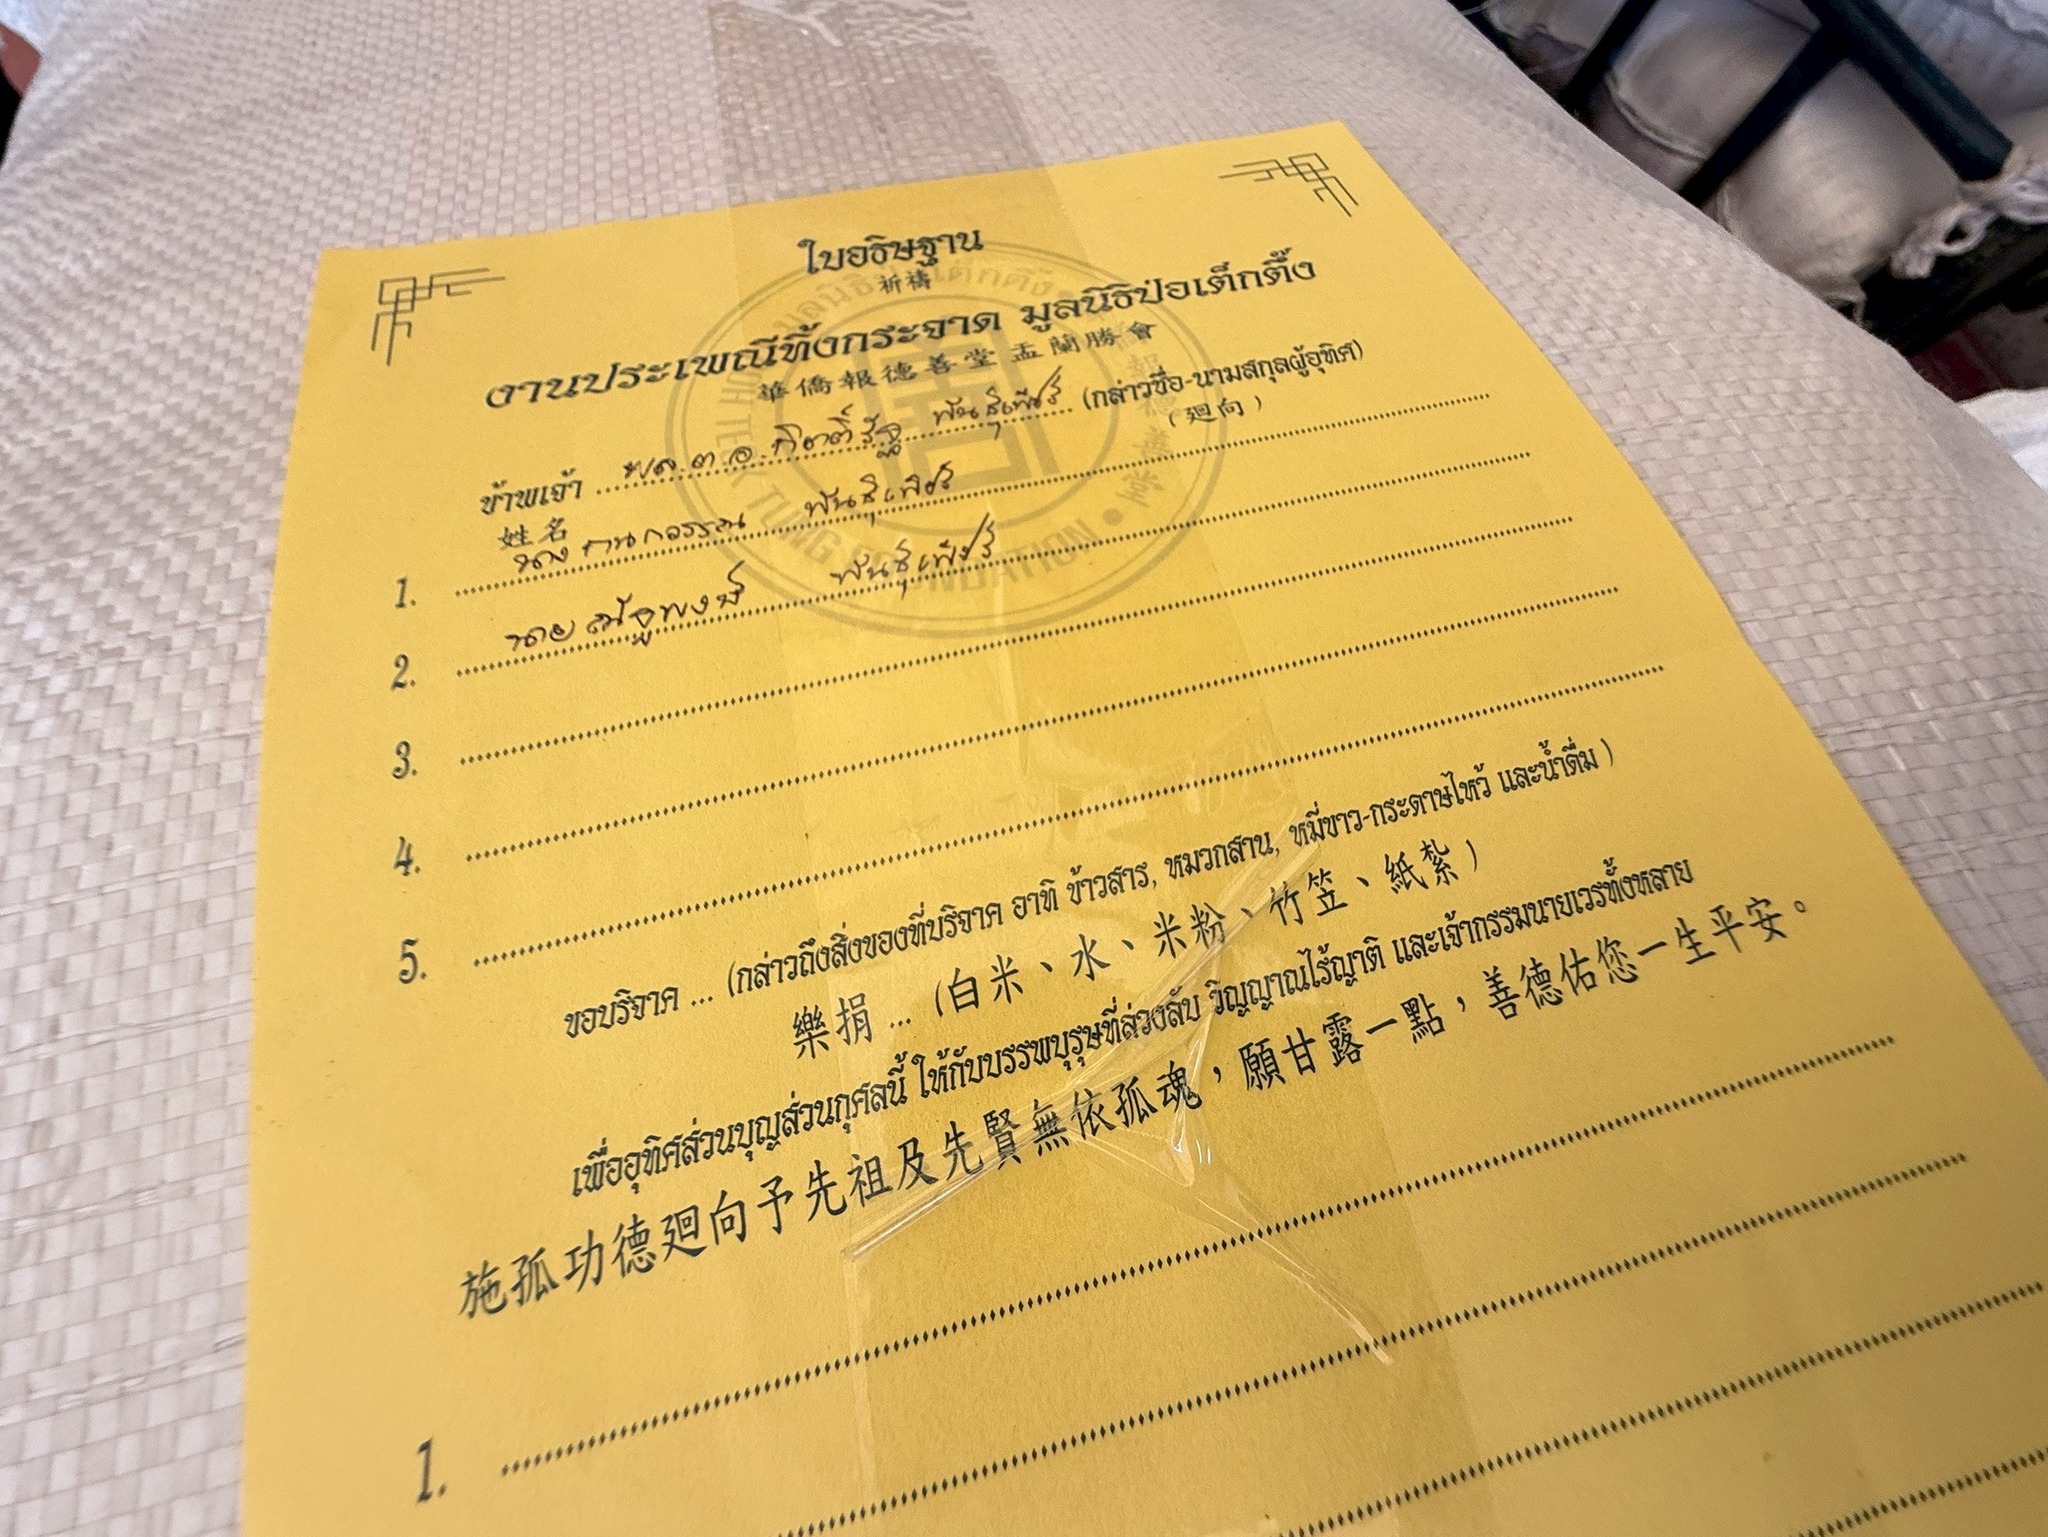 ใบอธิษฐาน
祈禱
งานประเพณีทิ้งกระจาด มูลนิธิป่อเต็กตึ๊ง
華僑報德善堂盂蘭勝會
ข้าพเจ้า พล.ต.อ.กิตติ์รัฐ พันธุ์เพ็ชร์ (กล่าวชื่อ-นามสกุลผู้อุทิศ)
姓名 (廻向)
1. นาง กนกวรรณ พันธุ์เพ็ชร์
2. นาย ณัฐพงษ์ พันธุ์เพ็ชร์
3.
4.
5.
ขอบริจาค ... (กล่าวถึงสิ่งของที่บริจาค อาทิ ข้าวสาร, หมวกสาน, หมี่ขาว-กระดาษไหว้ และน้ำดื่ม)
樂捐 ... (白米、水、米粉、竹笠、紙紮)
เพื่ออุทิศส่วนบุญส่วนกุศลนี้ ให้กับบรรพบุรุษที่ล่วงลับ วิญญาณไร้ญาติ และเจ้ากรรมนายเวรทั้งหลาย
施孤功德廻向予先祖及先賢無依孤魂，願甘露一點，善德佑您一生平安。
1.
TECK TUNG FOUNDATION